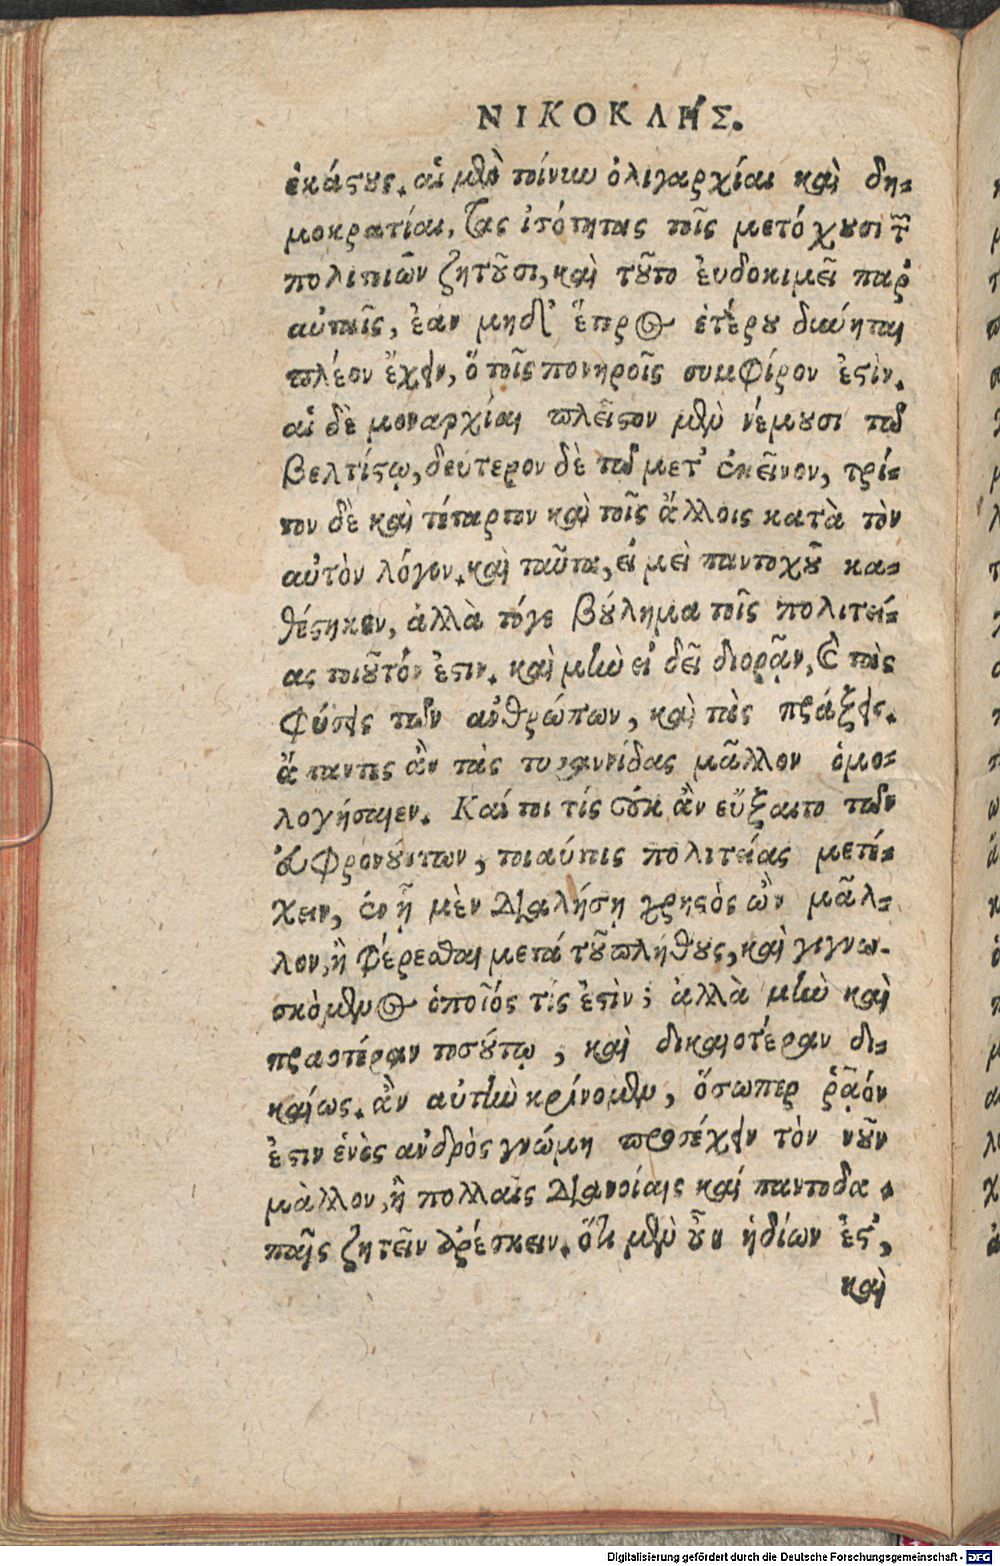 ΝΙΚΟΚΛΗ΄Σ.
ἑκάστους. αἱ μὲν τοίνυν ὀλιγαρχίαι καὶ δη-
μοκρατίαι, τὰς ἰσότητας τοῖς μετέχουσι τῶν
πολιτειῶν ζητοῦσι, καὶ τοῦτο ἐυδοκιμεῖ παρ᾽
αὐταῖς, ἐὰν μηδὲν ἕτερος ἑτέρου δύνηται
πλέον ἔχειν, ὅ τοῖς πονηροῖς συμφέρον ἐστὶν.
αἱ δὲ μοναρχίαι πλεῖστον μὲν νέμουσι τῷ
βελτίστῳ, δεύτερον δὲ τῷ μετ᾽ ἐκεῖνον, τρί-
τον δὲ καὶ τέταρτον καὶ τοῖς ἄλλοις κατὰ τὸν
αὐτὸν λόγον. καὶ ταῦτα, εἰ μὴ πανταχοῦ κα-
θέστηκεν, ἀλλὰ τόγε βούλημα τοῖς πολιτεί-
ας τοιοῦτόν ἐστιν. καὶ μὴν εἰ δεῖ διορᾷν, καὶ τὰς
φύσεις τῶν ἀνθρώπων, καὶ τὰς πράξεις.
ἅπαντες ἂν τὰς τυραννίδας μᾶλλον ὁμο-
λογήσαιεν. Καί τοι τίς οὐκ ἂν εὔξαιτο τῶν
εὖ φρονούντων, τοιαύτης πολιτείας μετέ-
χειν, ἐν ᾗ μὲν διαλήσῃ χρηστὸς ὢν μᾶλ-
λον, ἢ φέρεσθαι μετά τοῦ πλήθους, καὶ γιγνω-
σκόμενος ὁποῖός τίς ἐστὶν; ἀλλὰ μὴν καὶ
πραοτέραν τοσούτῳ, καὶ δικαιοτέραν δι-
καίως. ἂν αὐτὴν κρίνομεν, ὅσωπερ ῥᾷόν
ἐστιν ἑνὸς ἀνδρὸς γνώμη προσέχειν τὸν νοῦν
μᾶλλον, ἢ πολλαῖς διανοίαις καὶ παντοδα-
παῖς ζητεῖν ἀρέσκειν. ὅτι μὲν οὖν ἡδίων ἐστ᾽,
καὶ
Digitalisierung gefördert durch die Deutsche Forschungsgemeinschaft - DFG